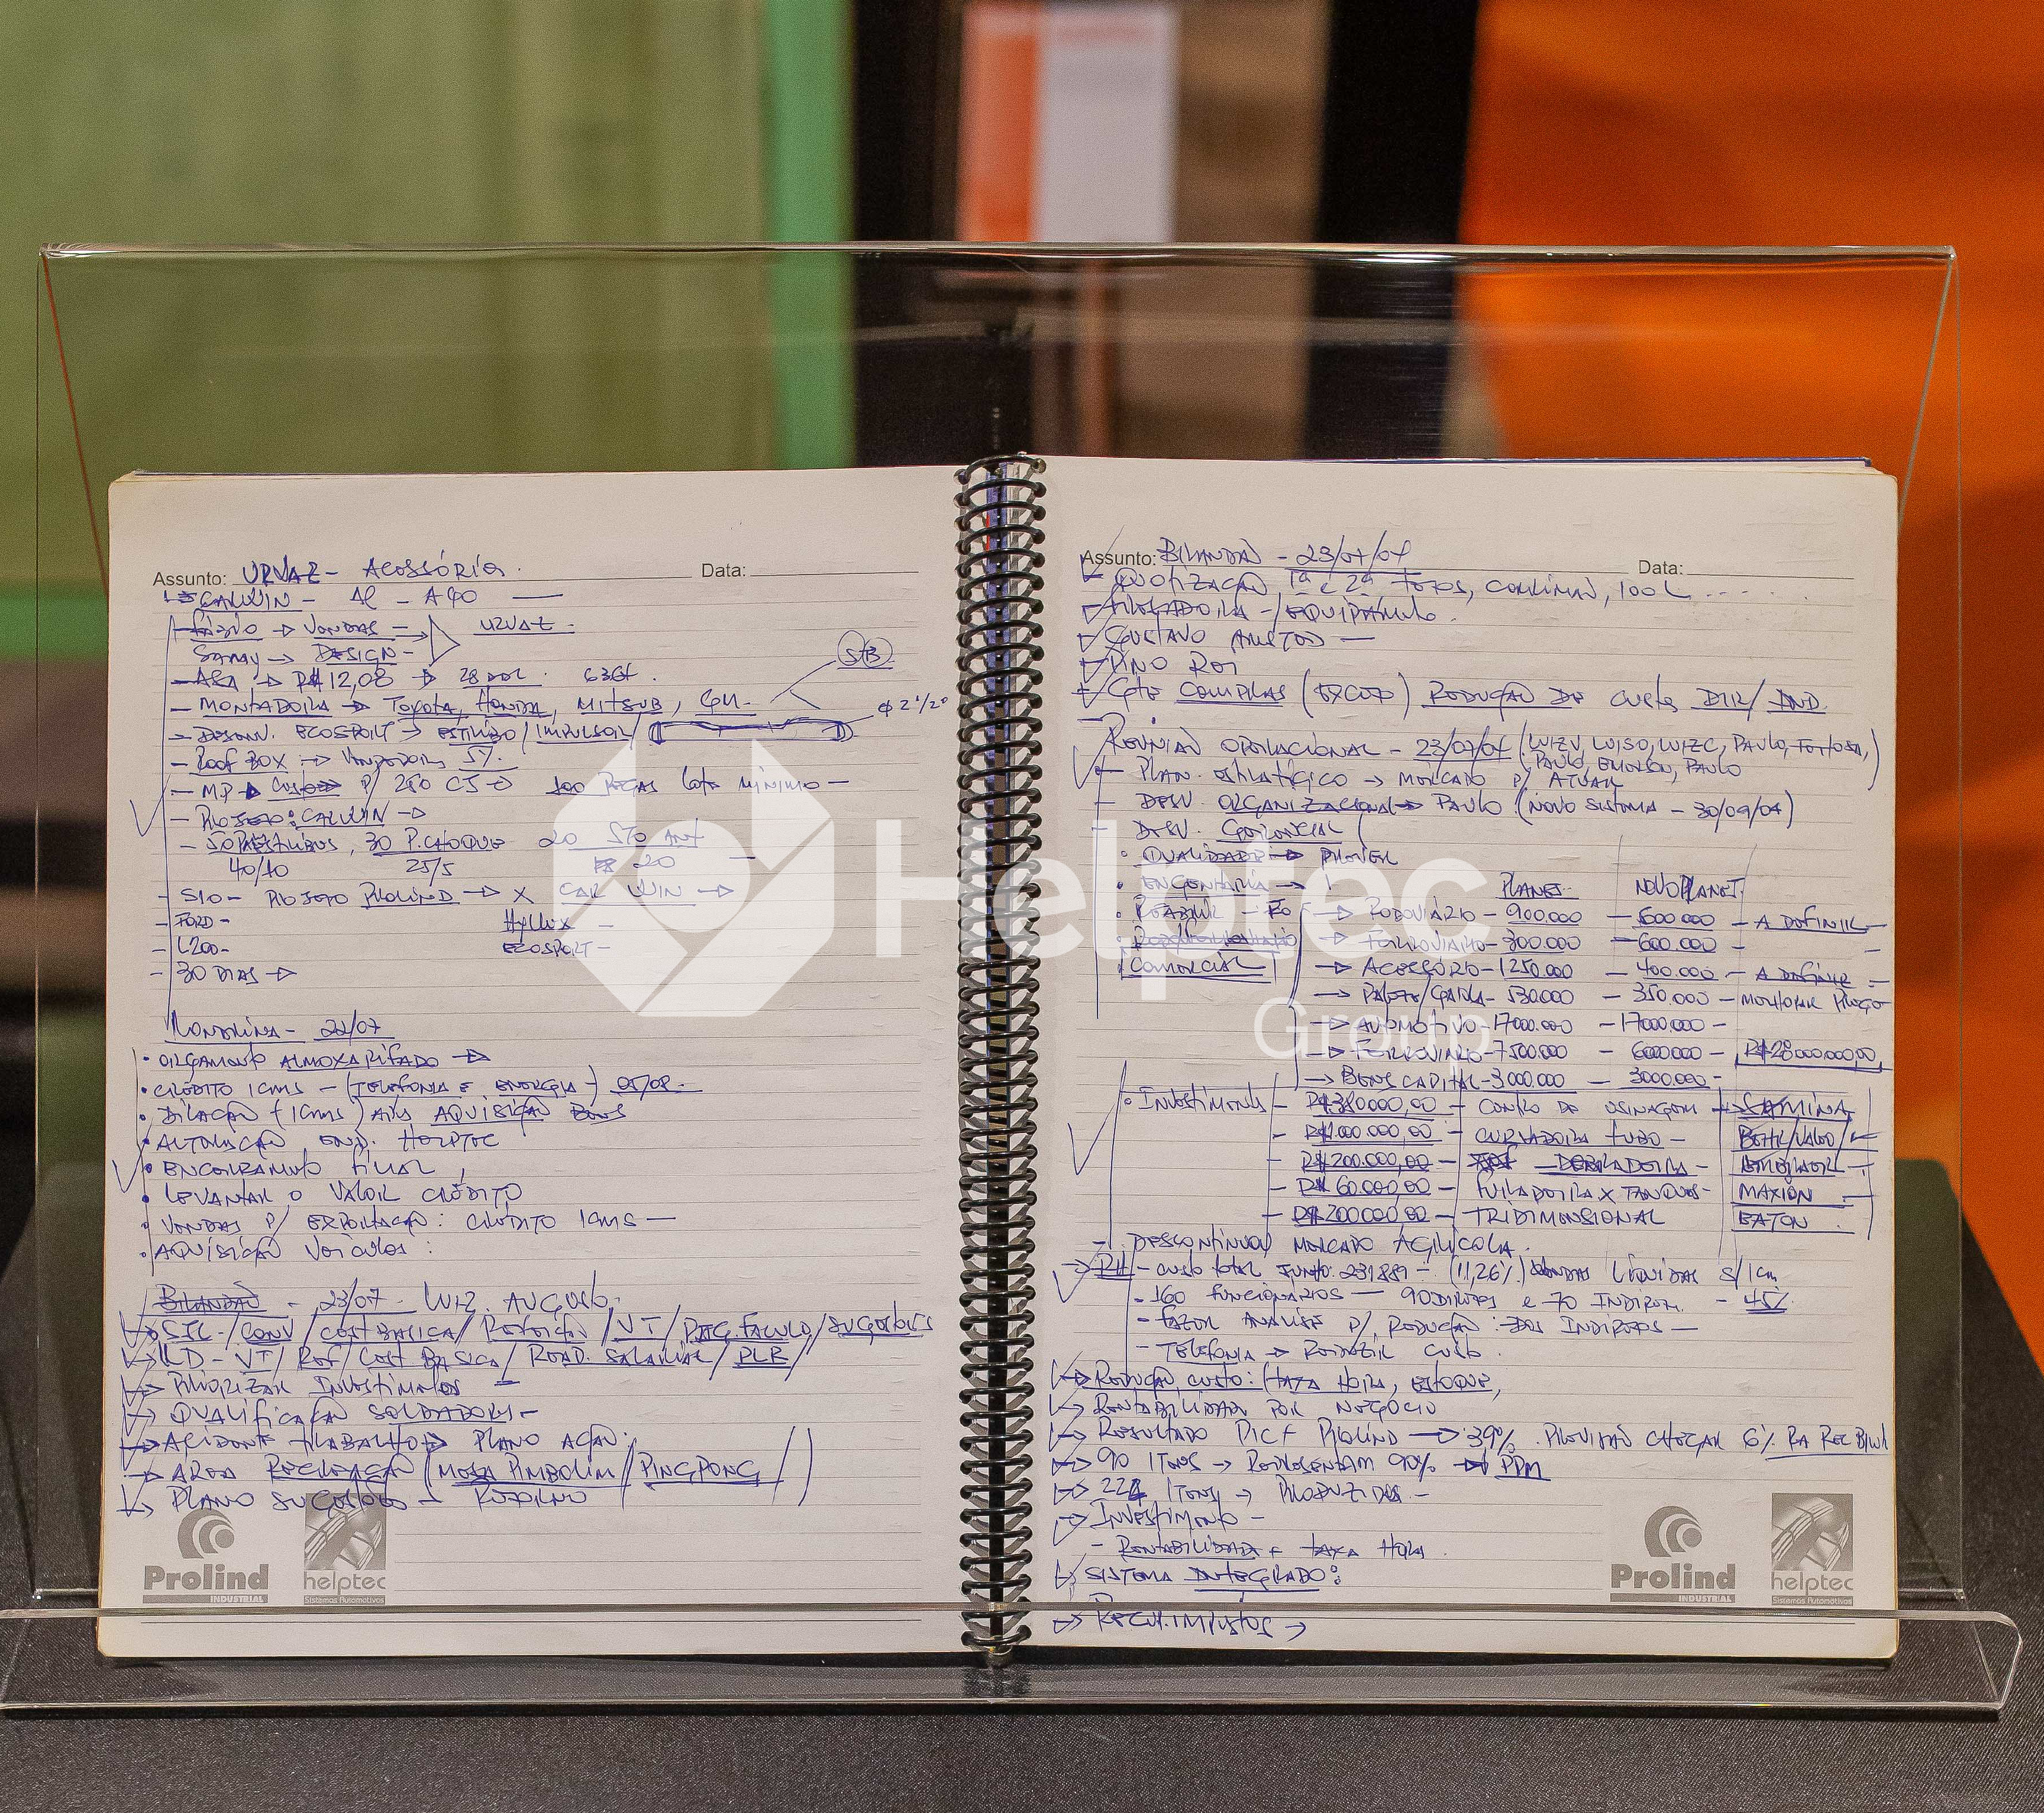 Assunto: URVAZ - ACESSÓRIOS.
Data:
CALWIN - AL - A40
FÁBIO → VENDAS - URVAZ
SAMY → DESIGN -
R$ 12,08 → 28 636f
STB
- MONTADORA → TOYOTA, HONDA, MITSUB, GM -
Φ 2 1/2"
- DESENV. ECOSPORT → ESTRIBO / IMPULSOR /
- ROOF BOX → VENDEDOR, 5%.
- MP → CUSTO P/ 250 100 PEÇAS LOTE MÍNIMO -
- PROJETO: CALWIN →
- 50 ESTRIBOS, 30 P. CHOQUE 20 STO ANT
40/10 25/5 20 -
- S10 - PROJETO PROLIND → X CAR WIN →
- FORD - HYLLUX -
- L200 - ECOSPORT -
- 30 DIAS →
LONDRINA - 22/07
• ORÇAMENTO ALMOXARIFADO →
• CRÉDITO ICMS - (TELEFONIA E ENERGIA) 05/08 -
• DILAÇÃO (ICMS) AQUISIÇÃO BENS
• AUTOMAÇÃO END. HELPTEC
• ENCERRAMENTO FILIAL
• LEVANTAR O VALOR CRÉDITO
• VENDAS P/ EXPORTAÇÃO: CRÉDITO ICMS -
• AQUISIÇÃO VEÍCULOS:
- 23/07 - LUIZ AUGUSTO.
→ SJC - / CONV / CEST BÁSICA / REFEIÇÃO / VT / / SUGESTÕES
→ LD - VT / REF / CEST BÁSICA / READ. SALARIAL / PLR /
→ PRIORIZAR INVESTIMENTOS
→ QUALIFICAÇÃO SOLDADORES -
→ ACIDENTE TRABALHO → PLANO AÇÃO.
→ ÁREA RECREAÇÃO (MESA PIMBOLIM / PINGPONG / )
→ PLANO SUCESSÃO - RETORNO
Prolind
INDUSTRIAL
helptec
Sistemas Automotivos
Assunto: - 23/07/04
Data:
COTIZAÇÃO, 1ª E 2ª 100L ....
/ EQUIPAMENTO.
GUSTAVO -
GTE COMPRAS () REDUÇÃO DE CUSTO DIR/IND.
REUNIÃO OPERACIONAL - 23/07/04 (LUIZ V, LUIS O, LUIZ C, PAULO,
PAULO, EMERSON, PAULO)
- PLAN. ESTRATÉGICO → MERCADO P/ ATUAR
- DESV. ORGANIZACIONAL → PAULO (NOVO SISTEMA - 30/09/04)
- DESV. GERENCIAL
• QUALIDADE → PROVER
• ENGENHARIA → PLANEJ. NOVO PLANEJ.
→ RODOVIÁRIO - 900.000 - 500.000 - A DEFINIR -
→ FERROVIÁRIO - 300.000 - 600.000 -
COMERCIAL → ACESSÓRIO - 1250.000 - 400.000 - A DEFINIR -
→ - 530.000 - 350.000 - MELHORAR PREÇO
→ AUTOMOTIVO - 17000.000 - 17000.000 -
→ FERROVIÁRIO - 7500.000 - 6000000 - R$ 28000.000,00
→ BENS CAPITAL - 3000.000 - 3000.000 -
• INVESTIMENTO - R$ 380.000,00 - CENTRO DE USINAGEM →
- R$ 200.000,00 - CURVADORA TUBO -
- R$ 200.000,00 - DOBRADEIRA -
- R$ 60.000,00 - FURADEIRA X TANQUES - MAXION
- R$ 200000,00 - TRIDIMENSIONAL EATON
- DESCONTINUOU MERCADO AGRÍCOLA.
→ RH - CUSTO TOTAL JUNHO: 231.889 - (11,26%) VENDAS LÍQUIDAS S/ ICM
- 160 FUNCIONÁRIOS - 90 DIRETOS E 70 INDIRET. - 45%
- FAZER ANÁLISE P/ REDUÇÃO DOS INDIRETOS -
- TELEFONIA → REDUZIR CUSTO.
→ REDUÇÃO CUSTO: (TAXA HORA, ESTOQUE,
→ RENTABILIDADE POR NEGÓCIO
→ RESULTADO PROLIND → 39% . PREVISÃO CHEGAR 6%
→ 90 ITENS → REPRESENTAM 90% → PPM
→ 224 ITENS → PRODUZIDOS -
→ INVESTIMENTO -
- RENTABILIDADE E TAXA HORA.
→ SISTEMA INTEGRADO:
→ RECUP. IMPOSTOS →
Prolind
INDUSTRIAL
helptec
Sistemas Automotivos
Helptec
Group